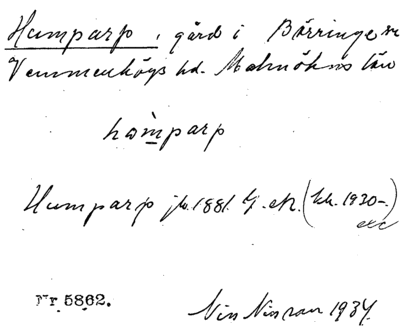 Humparp, gård i Börringe sn
Vemmenhögs hd. Malmöhus län
Humparp jb. 1881. G. ek. (kk. 1920-)
Nr 5862.
Nils Nilsson 1934.